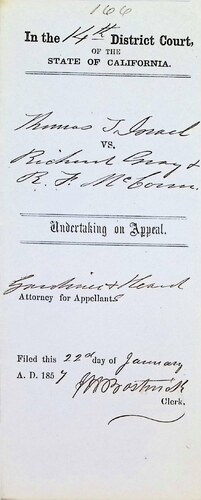 166
In the 14th District Court,
OF THE
STATE OF CALIFORNIA.
Thomas J. Israel
VS.
Richard Gray &
R. F. McConn.
Undertaking on Appeal.
Gardiner & Heard
Attorney for Appellants
Filed this 22nd day of January
A. D. 1857
Bostwick
Clerk.